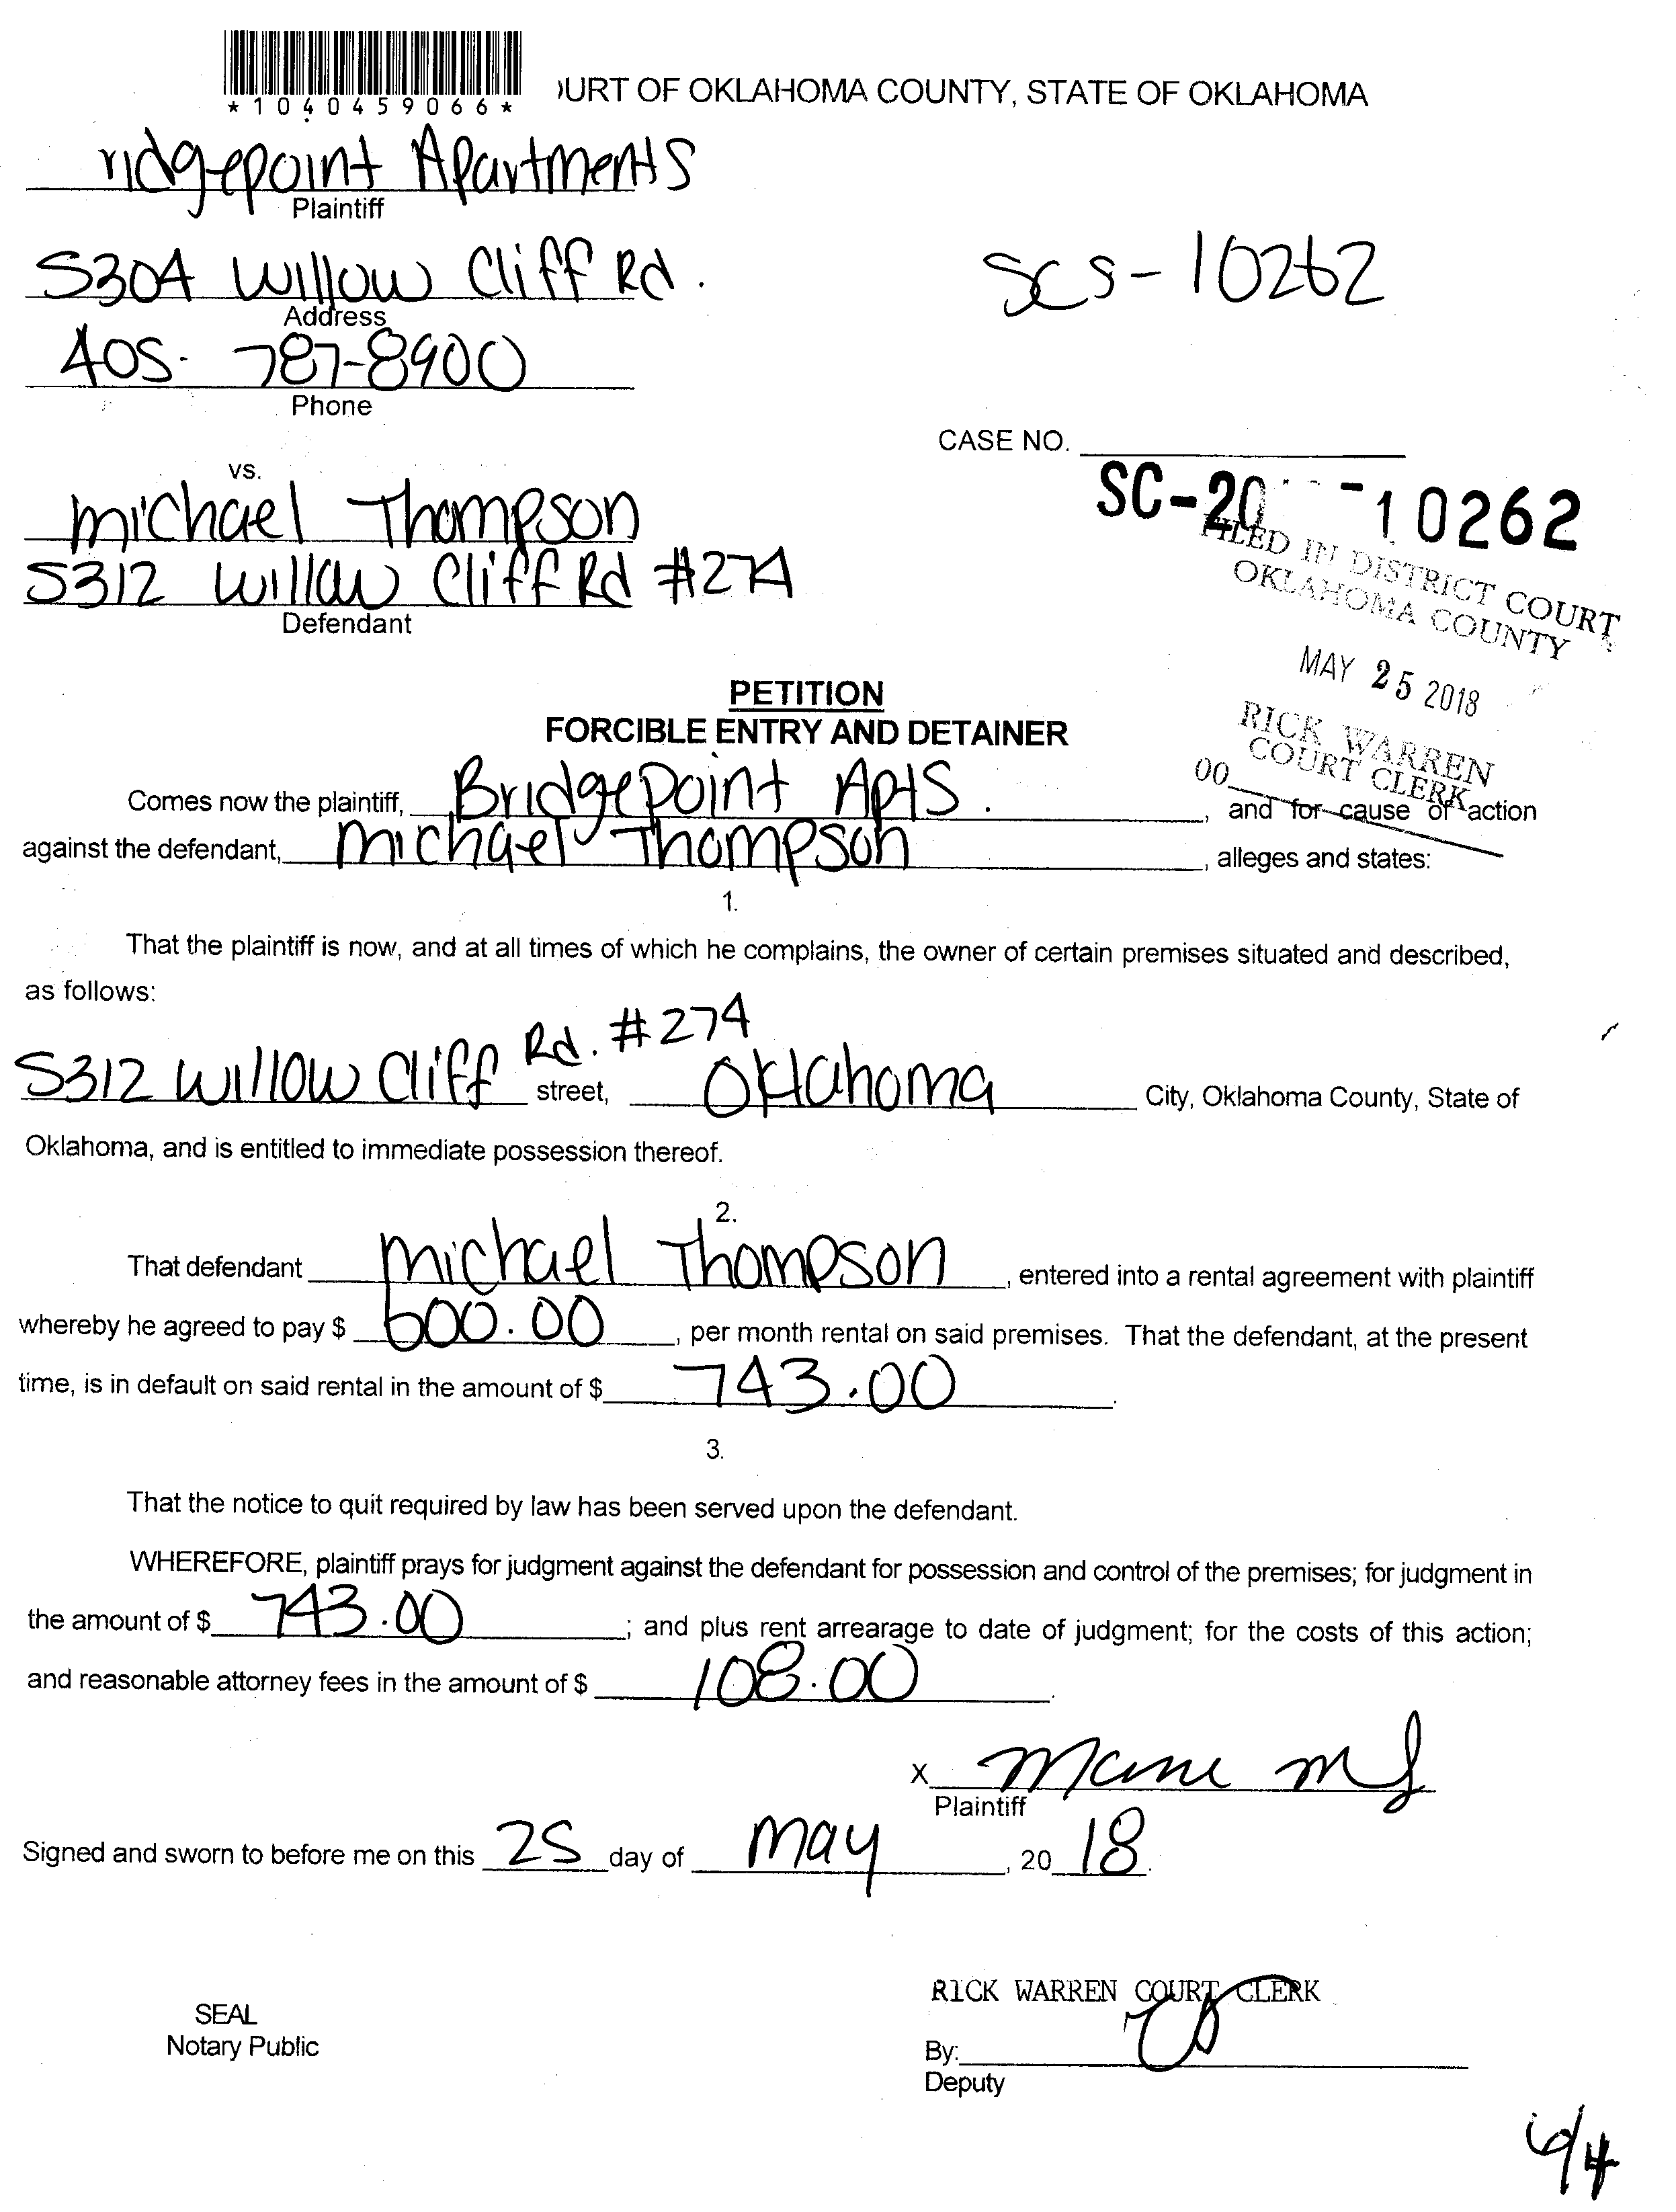 *1040459066*
URT OF OKLAHOMA COUNTY, STATE OF OKLAHOMA
ridgepoint Apartments
Plaintiff
5304 Willow Cliff Rd.
Address
SCS-10262
405- 787-8900
Phone
CASE NO.
vs.
SC-20 -10262
Michael Thompson
5312 Willow Cliff Rd #274
Defendant
FILED IN DISTRICT COURT
OKLAHOMA COUNTY
MAY 25 2018
RICK WARREN
COURT CLERK
00
PETITION
FORCIBLE ENTRY AND DETAINER
Comes now the plaintiff, BridgePoint Apts. , and for cause of action
against the defendant, Michael Thompson , alleges and states:
1.
That the plaintiff is now, and at all times of which he complains, the owner of certain premises situated and described,
as follows:
5312 Willow Cliff Rd. #274 street, Oklahoma City, Oklahoma County, State of
Oklahoma, and is entitled to immediate possession thereof.
2.
That defendant Michael Thompson , entered into a rental agreement with plaintiff
whereby he agreed to pay $ 600.00 , per month rental on said premises. That the defendant, at the present
time, is in default on said rental in the amount of $ 743.00 .
3.
That the notice to quit required by law has been served upon the defendant.
WHEREFORE, plaintiff prays for judgment against the defendant for possession and control of the premises; for judgment in
the amount of $ 743.00 ; and plus rent arrearage to date of judgment; for the costs of this action;
and reasonable attorney fees in the amount of $ 108.00 .
X
Plaintiff
Signed and sworn to before me on this 25 day of May , 20 18.
RICK WARREN COURT CLERK
SEAL
Notary Public
By:
Deputy
6/4